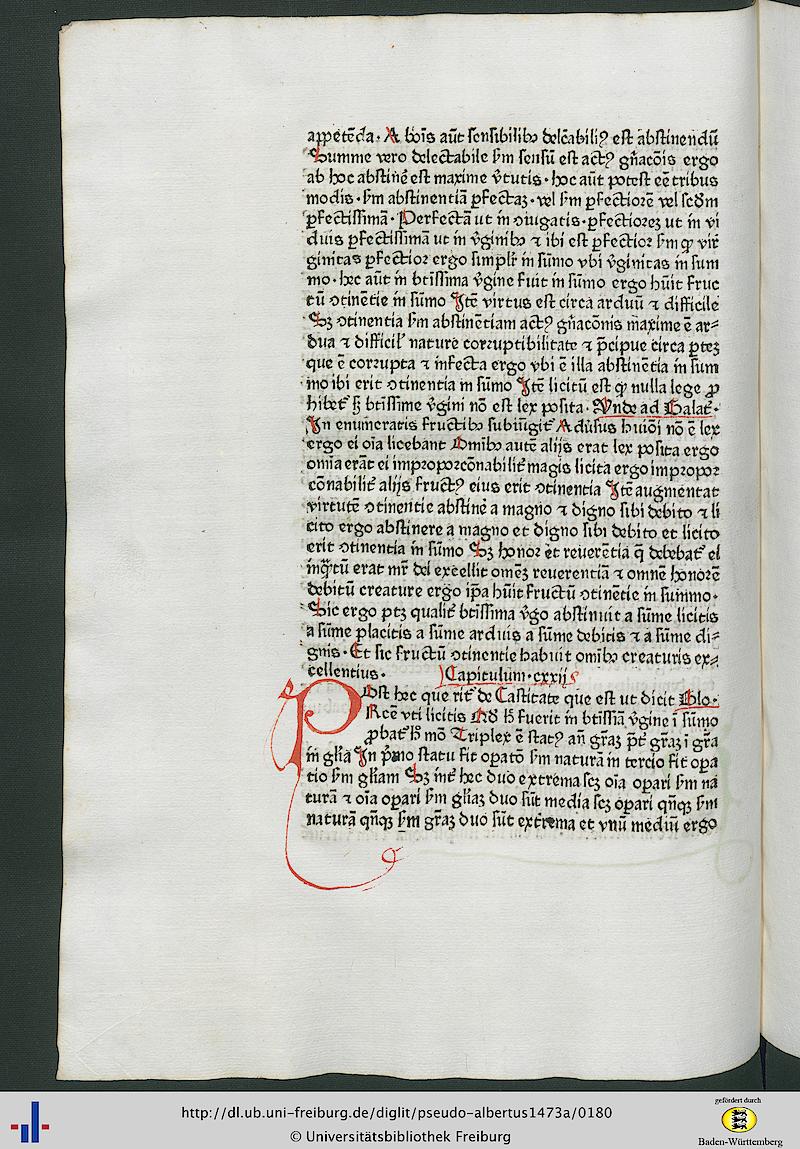 appetēda. A bo̅is aūt sensibilibꝫ delc̄abiliꝰ est abstinendū
Summe vero delectabile ẜm sensū est actꝰ gn̄aco̅is ergo
ab hoc abstinē est maxime v̄tutis. hoc aūt potest eē tribus
modis. ẜm abstinentiā ꝑfectaꝫ. vel ẜm ꝑfectiorē vel scd̄m
ꝑfectissimā. Perfectā ut in ↄiugatis. ꝑfectioreꝫ ut in vi
duis ꝑfectissimā ut in v̄ginibꝫ ⁊ ibi est ꝑfectior ẜm ꝙ vir
ginitas ꝑfectior ergo simplr̄ in sūmo vbi v̄ginitas in sum
mo. hec aūt in btīssima v̄gine fuit in sūmo ergo hūit fruc
tū ↄtinētie in sūmo Itē virtus est circa arduū ⁊ difficile
Sꝫ ↄtinentia ẜm abstinētiam actꝰ gn̄aco̅nis maxime ē ar⸗
dua ⁊ difficil̄ nature corruptibilitate ⁊ p̄cipue circa ꝑteꝫ
que ē corrupta ⁊ infecta ergo vbi ē illa abstinētia in sum
mo ibi erit ↄtinentia in sūmo Itē licitū est ꝙ nulla lege ꝓ
hibet̄ ẜꝫ btīssime v̄gini nō est lex posita. Vnde ad Galat̄.
In enumeratis fructibꝫ subiūgit̄ Adūsus huiōi nō ē lex
ergo ei oīa licebant Omībꝫ autē alijs erat lex posita ergo
omīa erāt ei improporco̅nabilit̄ magis licita ergo impropor
co̅nabilit̄ alijs fructꝰ eius erit ↄtinentia Itē augmentat
virtutē ↄtinentie abstinē a magno ⁊ digno sibi debito ⁊ li
cito ergo abstinere a magno et digno sibi debito et licito
erit ↄtinentia in sūmo Sꝫ honor et reuerētia q̄ debebat̄ ei
inqͣtū erat mr̄ dei excellit omēꝫ reuerentiā ⁊ omnē honorē
debitū creature ergo ip̄a hūit fructū ↄtinētie in summo.
Sic ergo ptꝫ qualit̄ btīssima v̄go abstinuit a sūme licitis
a sūme placitis a sūme arduis a sūme debitis ⁊ a sūme di⸗
gnis. Et sic fructū ↄtinentie habuit omībꝫ creaturis ex⸗
cellentius. Capitulum. cxxij
Post hec que rit̄ de Castitate que est ut dicit Glo.
Rcē vti licitis Qd̄ ẜꝫ fuerit in btīssiā v̄gine ī sūmo
ꝓbat̄ ẜꝫ mō Triplex ē statꝰ añ gr̄aꝫ p̄t gr̄aꝫ ī gr̄a
in gl̄ia In p̄mo statu fit oꝑatō ẜm naturā in tercio fit oꝑa
tio ẜm gl̄iam Sꝫ int̄ hec duo extrema scꝫ oīa oꝑari ẜm na
turā ⁊ oīa oꝑari ẜm gl̄iaꝫ duo sūt media scꝫ oꝑari qn̄qꝫ ẜm
naturā qn̄qꝫ ẜm gr̄aꝫ duo sūt extrema et vnū mediū ergo
http://dl.ub.uni-freiburg.de/diglit/pseudo-albertus1473a/0180
© Universitätsbibliothek Freiburg
gefördert durch
Baden-Württemberg